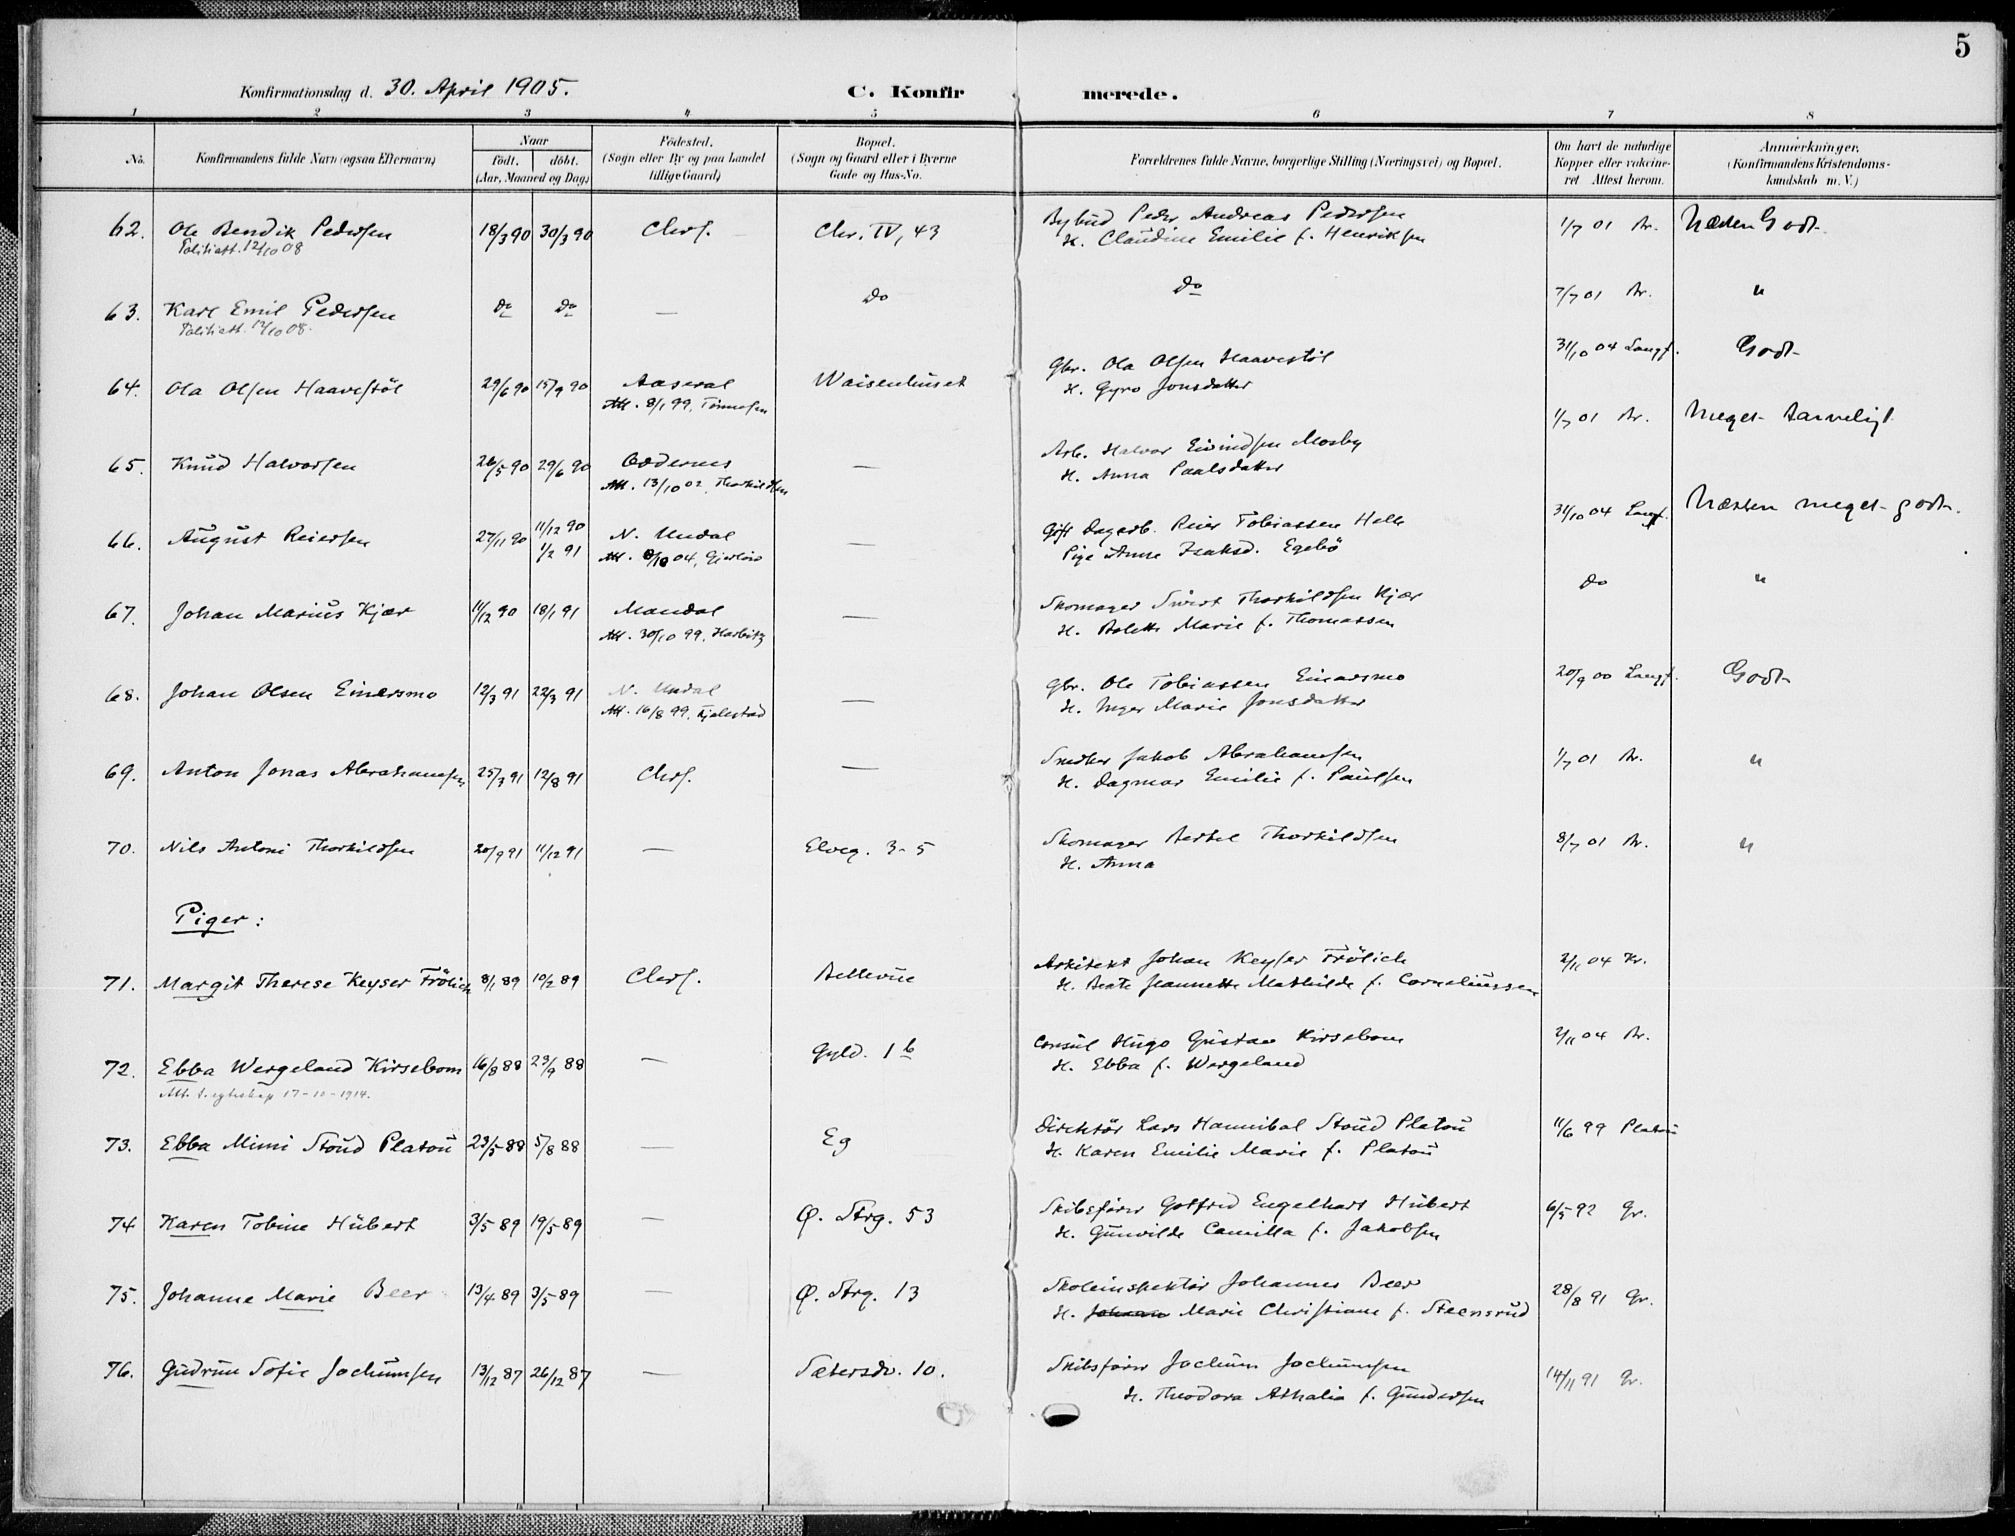 5
Konfirmationsdag d. 30. April 1905.
C. Konfir merede.
1 2 3 4 5 6 7 8
No.
Konfirmandens fulde Navn (ogsaa Efternavn)
Naar
födt. döbt.
(Aar, Maaned og Dag)
Födested.
(Sogn eller By og paa Landet
tillige Gaard)
Bopæl.
(Sogn og Gaard eller i Byerne
Gade og Hus-No.
Forældrenes fulde Navne, borgerlige Stilling (Næringsvei) og Bopæl.
Om havt de naturlige
Kopper eller vakcine-
ret Attest herom.
Anmærkninger.
(Konfirmandens Kristendoms-
kundskab m. V.)
62. Ole Bendik Pedersen 18/3 90 30/3 90 Chrs. Chr. IV, 43 Bybud Peder Andreas Pedersen 1/7 01 Br. Næsten Godt
Politiatt. 12/10 08 H. Claudine Emilie f. Henriksen
63. Karl Emil Pedersen Do Do — Do Do 7/7 01 Br. "
Politiatt. 12/10 08.
64. Ola Olsen Haavestöl 29/6 90 15/9 90 Aaseral Waisenhuset Gbr. Ola Olsen Haavestöl 31/10 04 Langf. Godt
Att. 8/1 99, Tönnesen H. Gyro Jonsdatter
65. Knud Halvorsen 26/5 90 29/6 90 Oddernes — Arb. Halvor Eivindsen Mosby 1/7 01 Br. Meget tarveligt
Att. 13/10 02, Thorkildsen H. Anna Paalsdatter
66. August Reiersen 27/11 90 11/12 90 1/2 91 N. Undal — Gift Dagarb. Reier Tobiassen Helle 31/10 04 Langf. Næsten meget godt.
Att. 8/10 04, Pige Anne Isaksd. Egebö
67. Johan Marius Kjær 11/12 90 18/1 91 Mandal — Skomager Sivert Thorkildsen Kjær Do "
Att. 30/10 99, Harbitz H. Bolette Marie f. Thomassen
68. Johan Olsen Einersmo 12/3 91 22/3 91 N. Undal — Gbr. Ole Tobiassen Einarsmo 20/9 00 Langf. Godt
Att. 16/8 99, Fjelestad H. Inger Marie Jonsdatter
69. Anton Jonas Abrahamsen 25/3 91 12/8 91 Chrs. — Snedker Jakob Abrahamsen 1/7 01 Br. "
H. Dagmar Emilie f. Paulsen
70. Nils Antoni Thorkildsen 20/9 91 11/12 91 — Elveg. 3-5 Skomager Bertel Thorkildsen 8/7 01 Br. "
H. Anna
Piger:
71. Margit Therese Keyser Frölich 8/1 89 10/2 89 Chrs. Bellevue Arkitekt Johan Keyser Frölich 2/11 04 Kr.
H. Beate Jeannette Mathilde f. Corneliussen
72. Ebba Wergeland Kirsebom 16/8 88 23/9 88 — Gyld. 1 b Consul Hugo Gustav Kirsebom 2/11 04 Br.
Att. t. egteskap 17-10-1914. H. Ebba f. Wergeland
73. Ebba Mimi Stoud Platou 23/5 88 5/8 88 — Eg Direktör Lars Hannibal Stoud Platou 11/6 99 Platou
H. Karen Emilie Marie f. Platou
74 Karen Tobine Hübert 3/5 89 19/5 89 — Ø. Strg. 53 Skibsförer Gotfred Engelhart Hübert 6/5 92 Gr.
H. Gunvilde Camilla f. Jakobsen
75. Johanne Marie Beer 13/4 89 3/5 89 — Ø. Strg. 13 Skoleinspektör Johannes Beer 28/8 91 Gr.
H. Marie Christiane f. Steensrud
76. Gudrun Sofie Jochumsen 13/12 87 26/12 87 — Sætersdv. 10. Skibsförer Jochum Jochumsen 14/11 91 Gr.
H. Theodora Athalia f. Gundersen